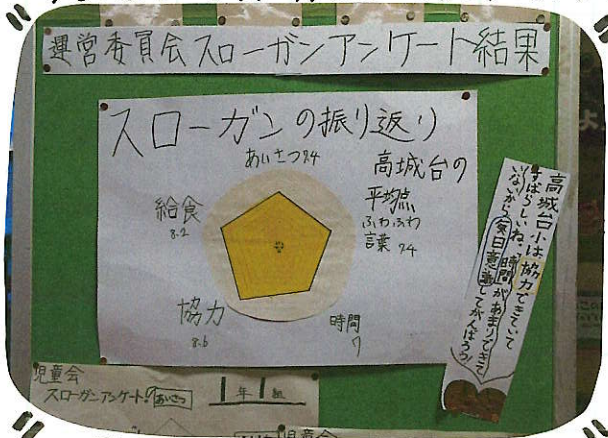 運営委員会スローガンアンケート結果
スローガンの振り返り
あいさつ7.4
高城台の
平均点
ふわふわ
言葉 7.4
給食
8.2
協力
8.6
時間
7
高城台小は協力できていて
すばらしいね、時間があまりできて
いないから毎日意識してがんばろう!
児童会
スローガンアンケート!あいさつ
1年1組
児童会